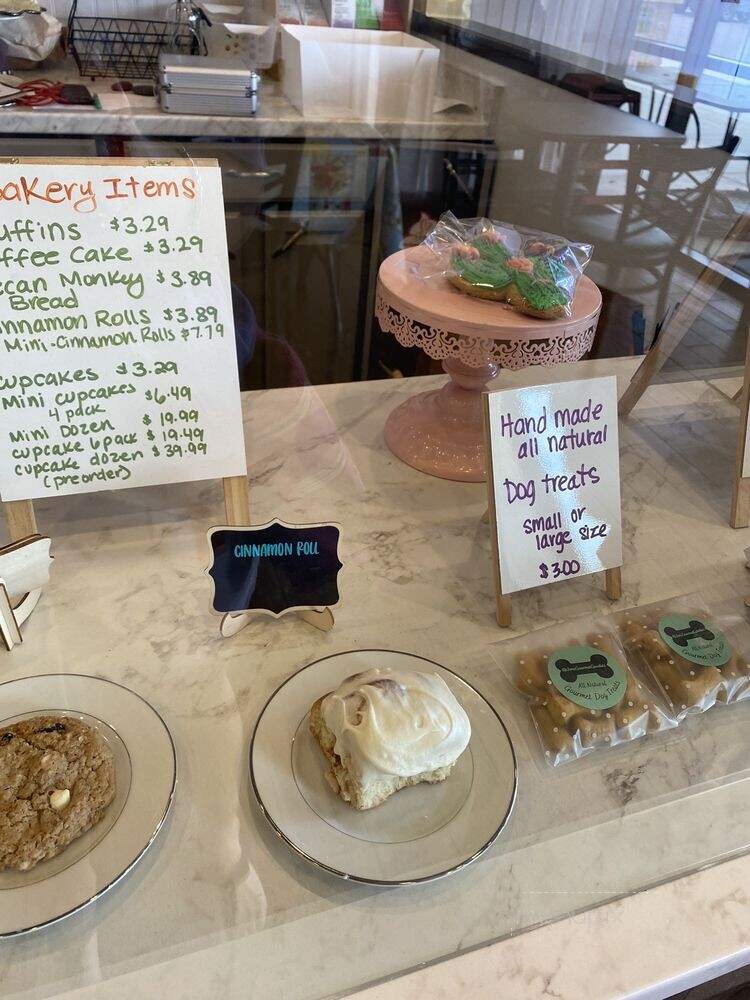 Bakery Items
uffins $3.29
ffee Cake $3.29
ecan Monkey $3.89
Bread
nnamon Rolls $3.89
Mini-Cinnamon Rolls $7.79
cupcakes $3.29
Mini cupcakes $6.49
4 pack
Mini Dozen $19.99
cupcake 6 pack $19.49
cupcake dozen $39.99
(preorder)
CINNAMON ROLL
Hand made
all natural
Dog treats
small or
large size
$3.00
All Natural
Gourmet Dog Treats
All Natural
Gourmet Dog Treats